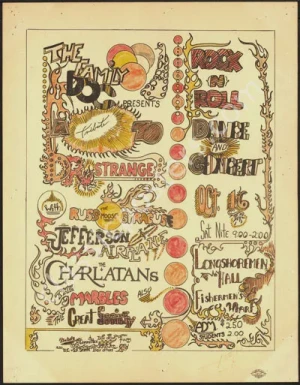 THE
FAMILY
DOG
PRESENTS
A
tribute
TO
DR. STRANGE
with
RUSS THE MOOSE SYRACUSE
JEFFERSON
AIRPLANE
THE
CHARLATANS
THE
MARBLES
ALSO
THE
Great Society
ROCK
N
ROLL
DANCE
AND
CONCERT
OCT 16
Sat Nite 9:00-2:00
LONGSHOREMEN'S
HALL
FISHERMEN'S
WHARF
ADM $2.50
STUDENTS 2.00